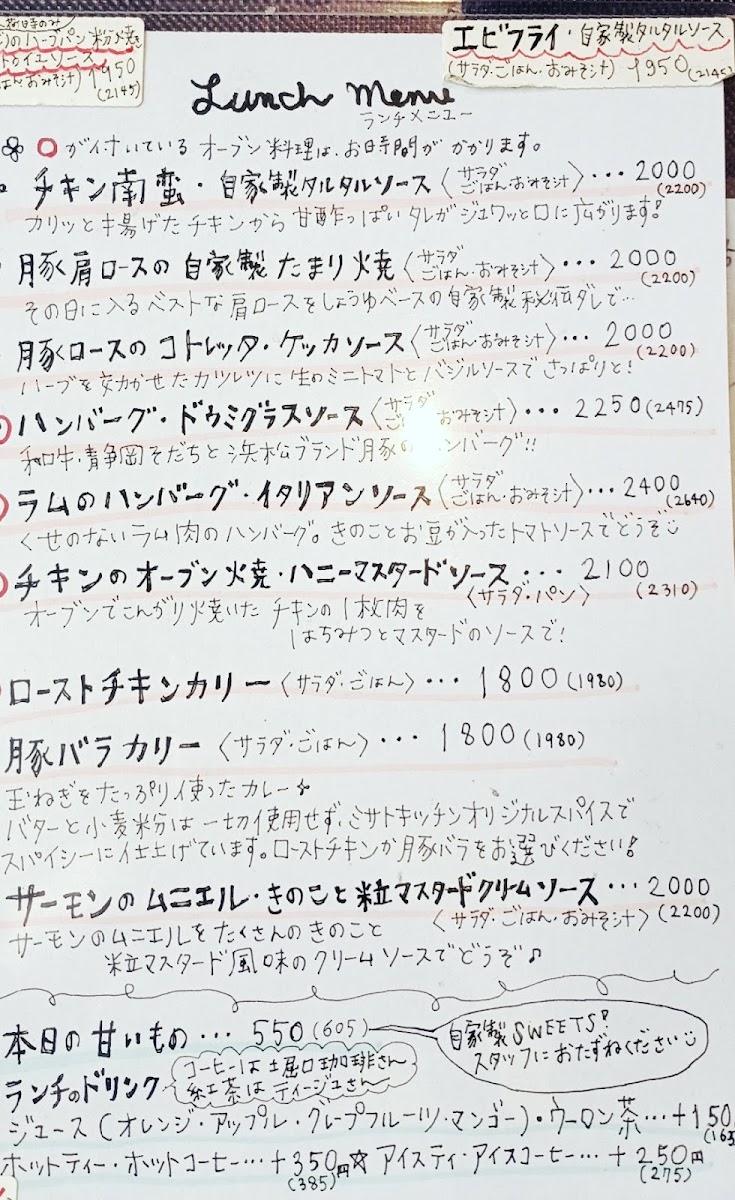 のハーブパン粉焼
1950
(2145)
エビフライ・自家製タルタルソース
(サラダ・ごはん・おみそ汁) 1950(2145)
Lunch Menu
ランチメニュー
○が付いている オーブン料理は、お時間が かかります。
チキン南蛮・自家製タルタルソース〈サラダ ごはん・おみそ汁〉・・・2000
(2200)
カリッと揚げたチキンから 甘酢っぱいタレがジュワッと口に広がります!
豚肩ロースの自家製たまり焼〈サラダ ごはん・おみそ汁〉・・・2000
(2200)
その日に入るベストな肩ロースをしょうゆベースの自家製秘伝ダレで…
豚ロースの コトレッタ・ケッカソース〈サラダ ごはん・おみそ汁〉・・・2000
(2200)
ハーブを効かせたカツレツに生のミニトマトとバジルソースでさっぱりと!
ハンバーグ・ドゥミグラスソース〈サラダ ごはん・おみそ汁〉・・・2250(2475)
和牛・静岡そだちと浜松ブランド豚のハンバーグ!!
ラムのハンバーグ・イタリアンソース〈サラダ ごはん・おみそ汁〉・・・2400
(2640)
くせのないラム肉のハンバーグ。きのことお豆が入ったトマトソースでどうぞ
チキンのオーブン焼・ハニーマスタードソース・・・2100
〈サラダ・パン〉 (2310)
オーブンでこんがり焼いた チキンの1枚肉を
はちみつとマスタードのソースで!
ローストチキンカリー〈サラダ・ごはん〉・・・1800(1980)
豚バラカリー〈サラダ・ごはん〉・・・1800(1980)
玉ねぎをたっぷり使ったカレー
バターと小麦粉は一切使用せず、ミサトキッチンオリジナルスパイスで
スパイシーに仕上げています。ローストチキンか豚バラをお選びください!
サーモンのムニエル・きのこと粒マスタードクリームソース・・・2000
〈サラダ・ごはん・おみそ汁〉(2200)
サーモンのムニエルをたくさんのきのこと
粒マスタード風味のクリームソースでどうぞ♪
本日の甘いもの・・・550(605)
自家製SWEETS!
スタッフにおたずねください
ランチのドリンク
コーヒーは土屋口珈琲さん
紅茶はティージュさん
ジュース(オレンジ・アップル・グレープフルーツ・マンゴー)・ウーロン茶・・・+150
ホットティー・ホットコーヒー・・・+350円☆アイスティ・アイスコーヒー・・・+250円
(385) (275)